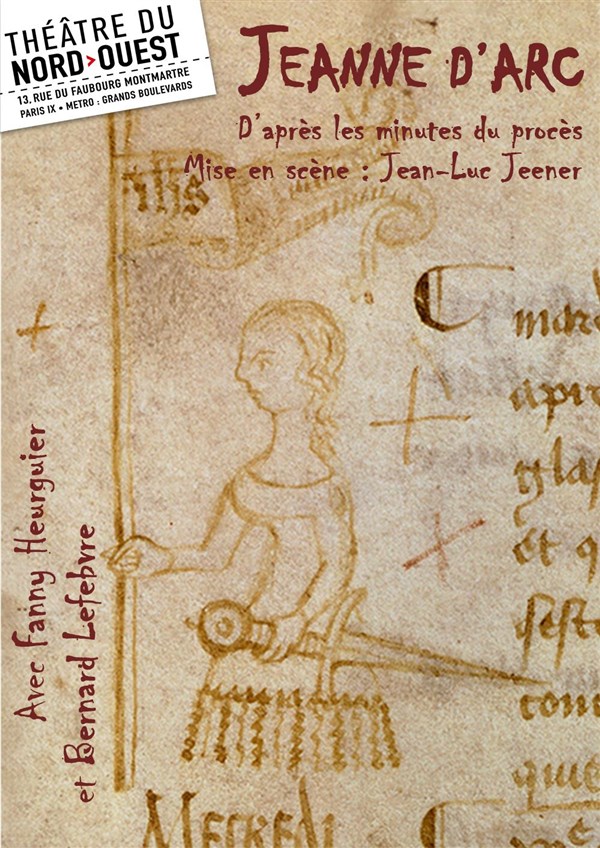 THÉÂTRE DU
NORD>OUEST
13, RUE DU FAUBOURG MONTMARTRE
PARIS IX • METRO : GRANDS BOULEVARDS
JEANNE D'ARC
D'après les minutes du procès
Mise en scène : Jean-Luc Jeener
Avec Fanny Heurguier
et Bernard Lefebvre